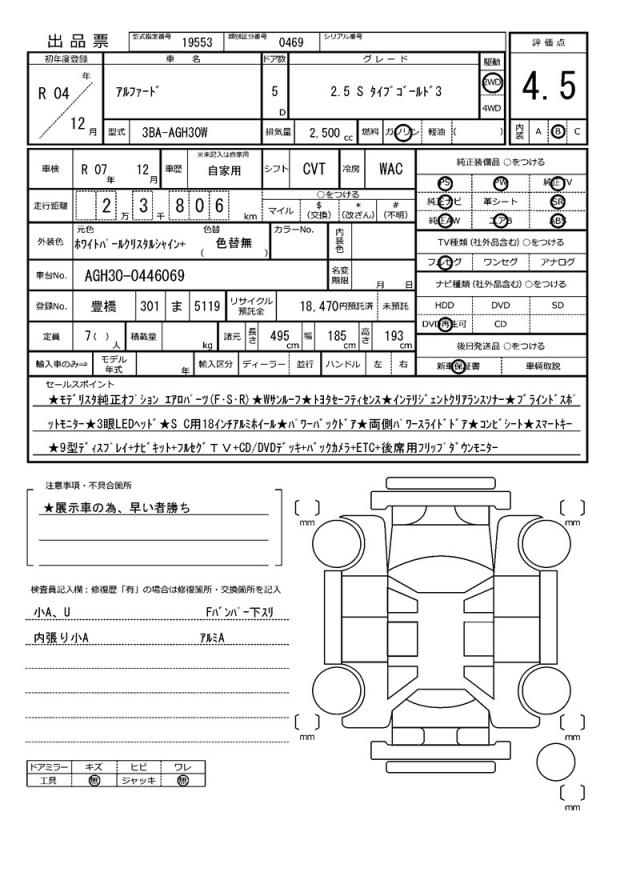 出品票 型式指定番号 19553 類別区分番号 0469 シリアル番号
初年度登録 車名 ドア数 グレード 駆動 評価点
R 04 年 12 月 アルファード 5 D 2.5 S タイプゴールド3 2WD 4WD 4.5
型式 3BA-AGH30W 排気量 2,500 cc 燃料 ガソリン 軽油 ( ) 内装 A B C
車検 R 07 年 12 月 車歴 ※未記入は自家用 自家用 シフト CVT 冷房 WAC 純正装備品 ○をつける
PS PW 純正TV
走行距離 2 万 3 千 8 0 6 km ○をつける マイル $ (交換) * (改ざん) # (不明) 純正ナビ 革シート SR
純正AW エアB ABS
外装色 元色 ホワイトパールクリスタルシャイン+ 色替 ( 色替無 ) カラーNo. 内装色 TV種類 (社外品含む) ○をつける
フルセグ ワンセグ アナログ
車台No. AGH30-0446069 名変期限 月 日 ナビ種類 (社外品含む) ○をつける
登録No. 豊橋 301 ま 5119 リサイクル預託金 18,470円預託済 未預託 HDD DVD SD
DVD再生可 CD
定員 7( ) 人 積載量 kg 諸元 長さ 495 cm 幅 185 cm 高さ 193 cm 後日発送品 ○をつける
輸入車のみ⇒ モデル年式 年 輸入区分 ディーラー 並行 ハンドル 左 右 新車保証書 車輌取説
セールスポイント
★モデリスタ純正オプション エアロパーツ(F・S・R)★Wサンルーフ★トヨタセーフティセンス★インテリジェントクリアランスソナー★ブラインドスポ
ットモニター★3眼LEDヘッド★S C用18インチアルミホイール★パワーバックドア★両側パワースライドドア★コンビシート★スマートキー
★9型ディスプレイ+ナビキット+フルセグTV+CD/DVDデッキ+バックカメラ+ETC+後席用フリップダウンモニター
注意事項・不具合箇所
★展示車の為、早い者勝ち
mm mm
検査員記入欄：修復歴「有」の場合は修復箇所・交換箇所を記入
小A、U Fバンパー下スリ
内張り小A アルミA
mm mm
ドアミラー キズ ヒビ ワレ
工具 無 ジャッキ 無
mm